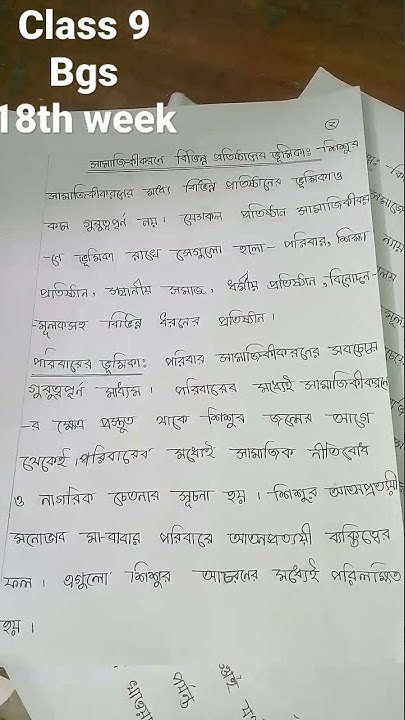 Class 9
Bgs
18th week
২
সামাজিকীকরণে বিভিন্ন প্রতিষ্ঠানের ভূমিকা:- শিশুর
সামাজিকীকরণের মধ্যে বিভিন্ন প্রতিষ্ঠানের ভূমিকাও
কম গুরুত্বপূর্ণ নয়। যেসকল প্রতিষ্ঠান সামাজিকীকর
-নে ভূমিকা রাখে সেগুলো হলো- পরিবার, শিক্ষা
প্রতিষ্ঠান, স্থানীয় সমাজ, ধর্মীয় প্রতিষ্ঠান, বিনোদন
-মূলকসহ বিভিন্ন ধরনের প্রতিষ্ঠান।
পরিবারের ভূমিকা: পরিবার সামাজিকীকরণের সবচেয়ে
গুরুত্বপূর্ণ মাধ্যম। পরিবারের মধ্যেই সামাজিকীকরনে
-র ক্ষেত্র প্রস্তুত থাকে শিশুর জন্মের আগে
থেকেই। পরিবারের মধ্যেই সামাজিক নীতিবোধ
ও নাগরিক চেতনার সূচনা হয়। শিশুর আত্মপ্রত্যয়ী
মনোভাব মা-বাবার পরিবারে আত্মপ্রত্যয়ী ব্যক্তিত্বের
ফল। এগুলো শিশুর আচরনের মধ্যেই পরিলক্ষিত
হয়।